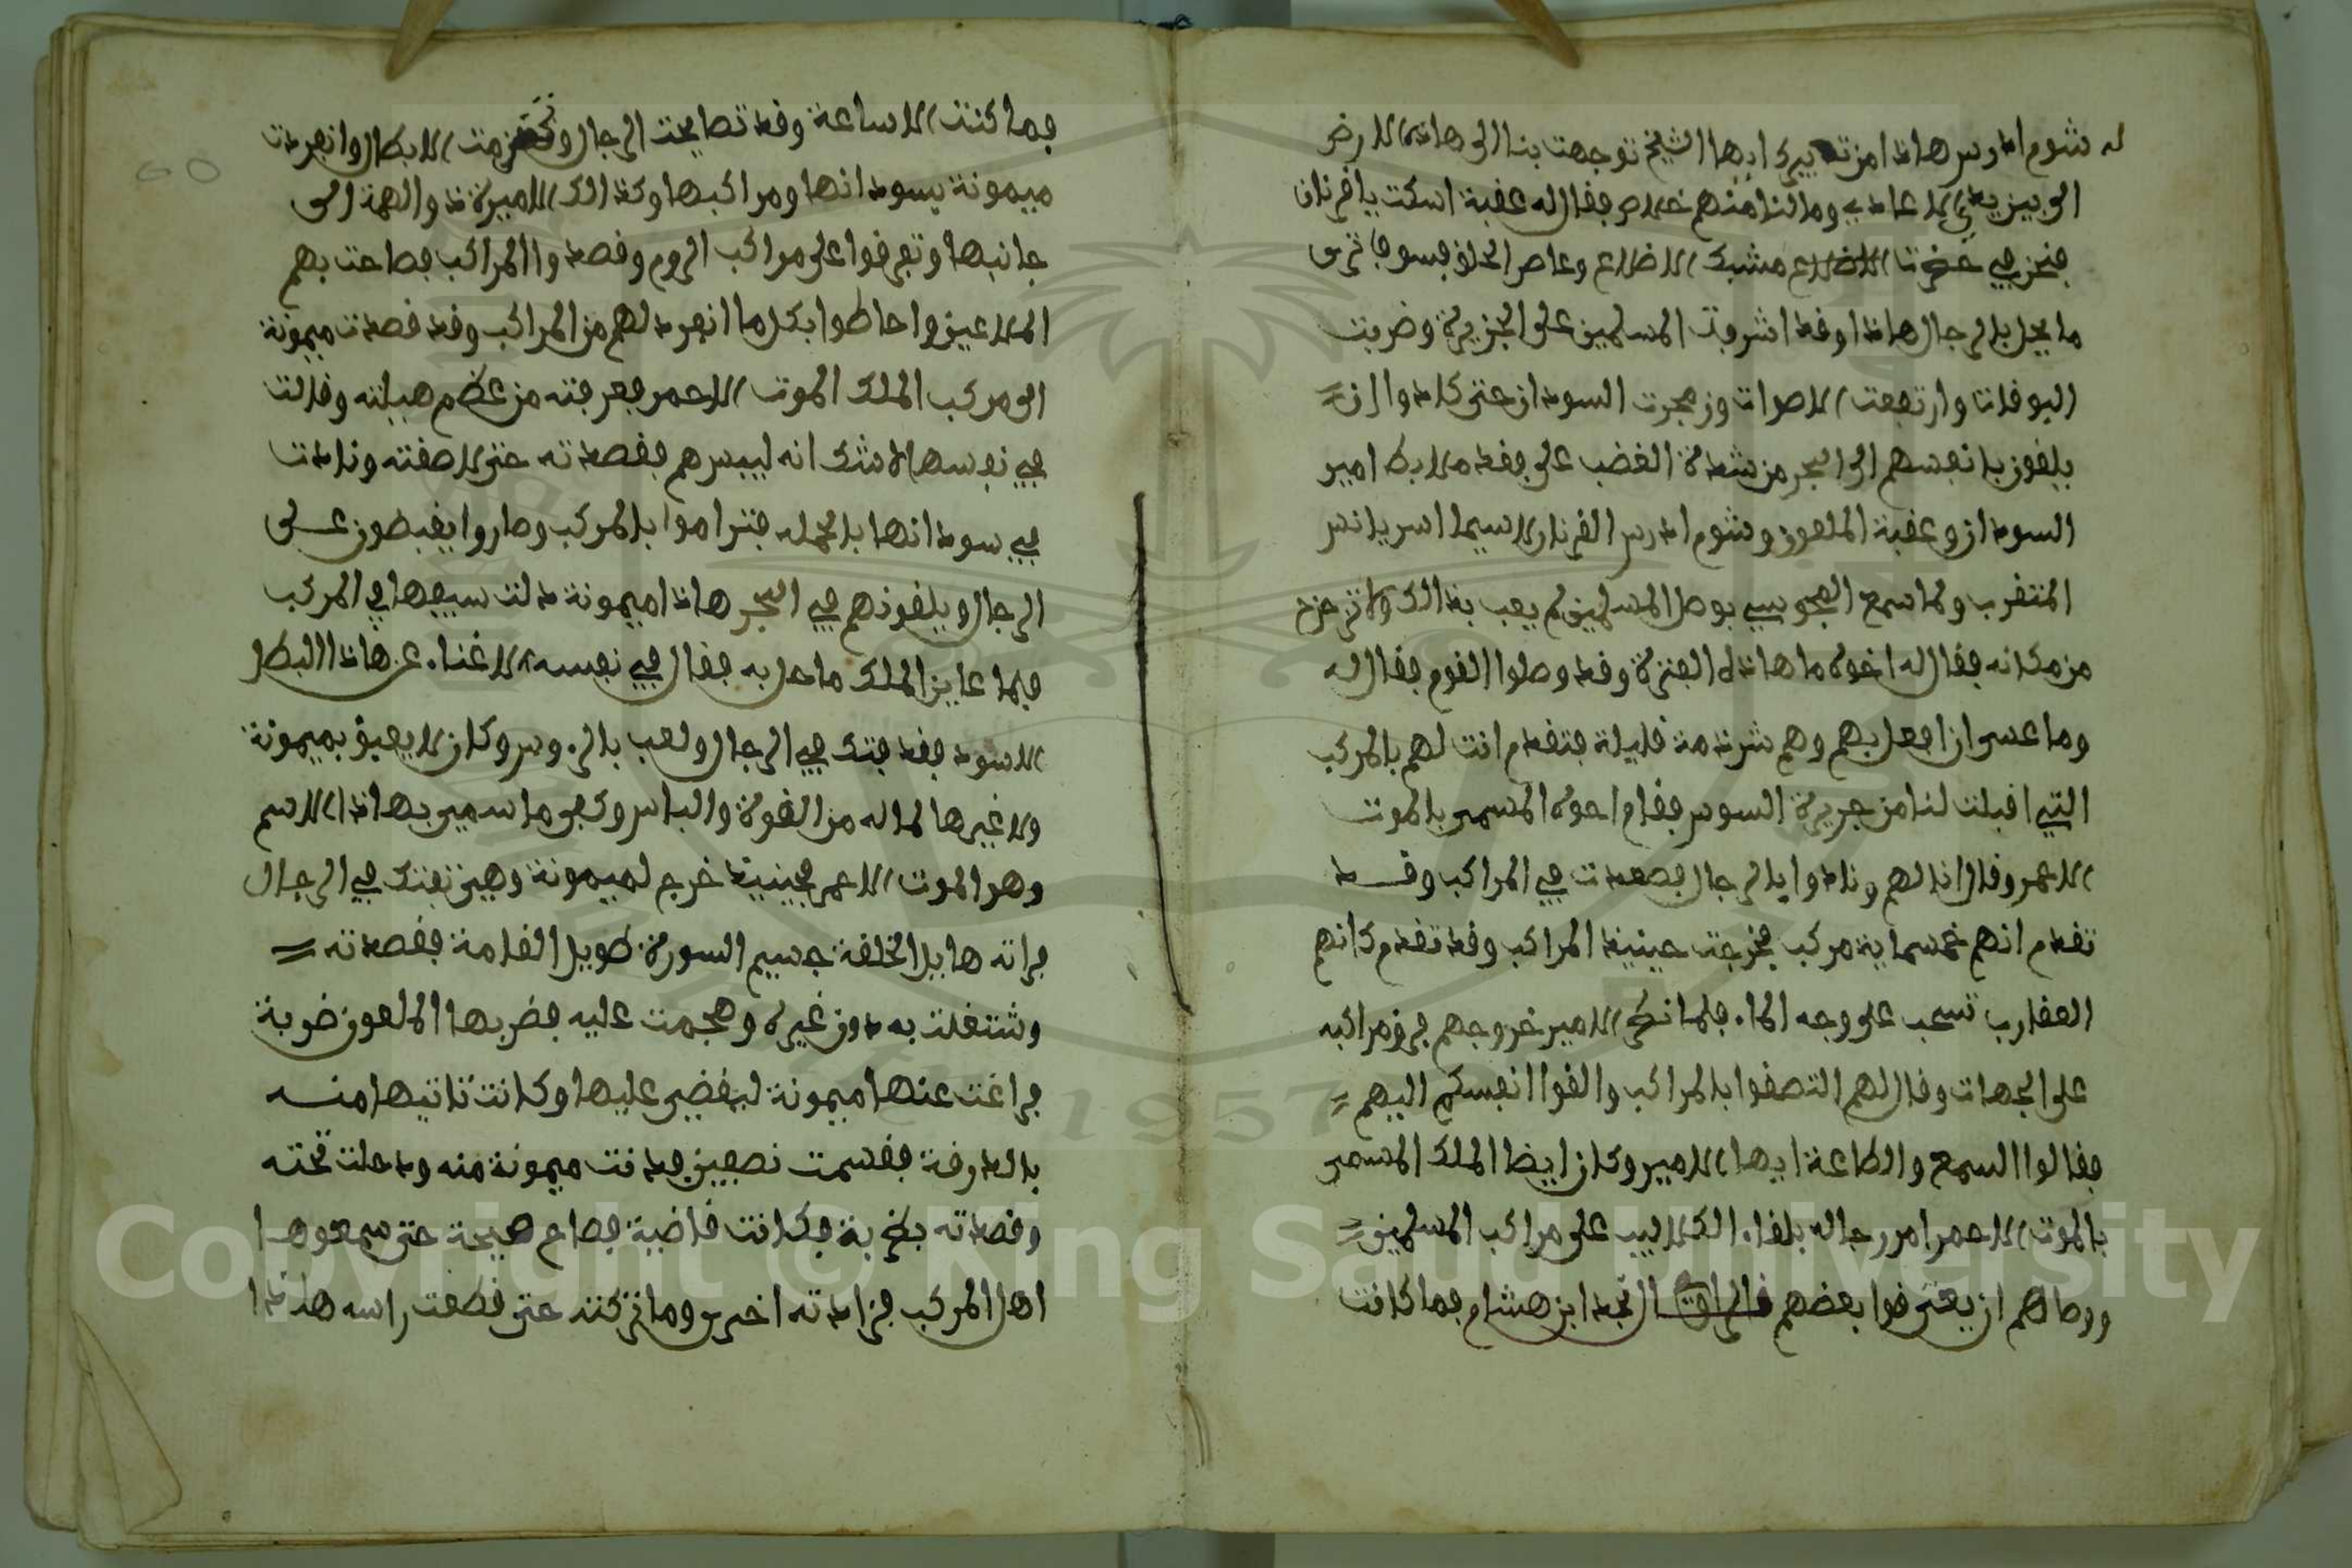 له شوم ادرس هاذا من تدبيرك ايها الشيخ توجهت بنا الى هاذه الارض
الى بين يدي الاعادي وما لنا منهم خلاص فقال له عقبة اسكت يا قرنان
فنحن في الاضلاع مشبك الاضلاع وعاصر الخلق فسوف ترى
ما يحل بالرجال هاذا وقد اشرفت المسلمين على الجزيرة وضربت
البوقات وارتفعت الاصوات وزمجرت السودان حتى كادوا ان
يلقون بانفسهم الى البحر من شدة الغضب على فقد الابط امير
السودان وعقبة الملعون وشوم ادرس القرنان لاسيما اسر يانس
المتقرب ولما سمع بوصل المسلمين لم يعب بذالك ولا تزحزح
من مكانه فقال له اخوه ما هاذه الفترة وقد وصلوا القوم فقال له
وما عسى ان افعل بهم وهم شرذمة قليلة فتقدم انت لهم بالمركب
التي اقبلت لنا من جزيرة السوس فقام اخوه المسمى بالموت
الاحمر وقال انا لهم ونادوا يا لرجال فصعدت في المراكب وقد
تقدم انهم خمسماية مركب فخرجت حينيذ المراكب وقد تقدم كانهم
العقارب تسحب على وجه الماء فلما نظر الامير خروجهم فرق مراكبه
على الجهات وقال لهم التصقوا بالمراكب والقوا انفسكم اليهم
فقالوا السمع والطاعة ايها الامير وكان ايضا الملك المسمى
بالموت الاحمر امر رجاله بلقاء الكلاليب على مراكب المسلمين
ووصاهم ان يعترفوا بعضهم قال الراوي نجد ابن هشام فما كانت
فما كنت الا ساعة وقد تصايحت الرجال وتحزمت الابطال وانفردت
ميمونة بسودانها ومراكبها وكذالك الاميرة ذو الهمة الى
جانبها وتعرفوا على مراكب الروم وقصدوا المراكب فصاحت بهم
الملاعين واحاطوا بكل ما انفرد لهم من المراكب وقد قصدت ميمونة
الى مركب الملك الموت الاحمر فعرفته من عظم هيلته وقالت
في نفسها لا شك انه ليسرهم فقصدته حتى لاصقته ونادت
في سودانها بالحمله فتراموا بالمركب وصاروا يقبطون على
الرجال ويلقونهم في البحر هاذا وميمونة دلت سيفها في المركب
فلما عاين الملك ما حل به فقال في نفسه لاغناء عن هاذا البطل
الاسود فقد فتك في الرجال ولعب بالروس وكان لا يعبو بميمونة
ولا غيرها لما له من القوة والباس وكفى ما سمي بهاذا الاسم
وهو الموت الاحمر فحينيذ خرج لميمونة وهي تفتك في الرجال
فراته هايل الخلقة جسيم السورة طويل القامة فقصدته
وشتغلت به دون غيره وهجمت عليه فضربها الملعون ضربة
فراغت عنها ميمونة ليقضي عليها وكانت تاتيها منه
بالدرقة فقسمت نصفين فدنت ميمونة منه ودخلت تحته
وقصدته بضربة فكانت قاضية فصاح صيحة حتى سمعوها
اهل المركب فزادته اخرى وما تركته حتى قطعت راسه هاذا